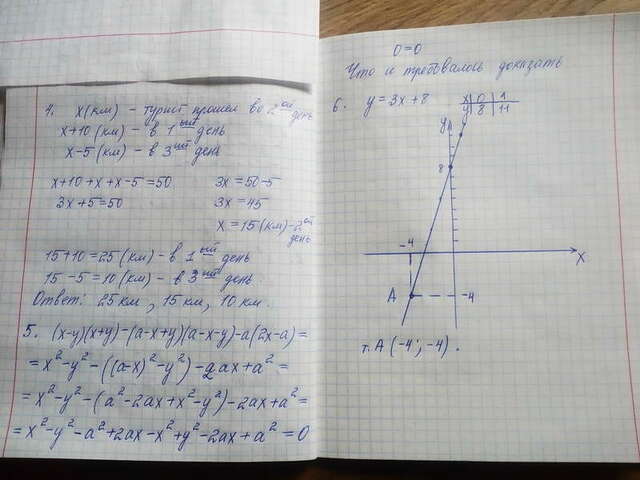 4. x(км) - турист прошел во 2ой день
x+10 (км) - в 1ый день
x-5 (км) - в 3ий день
x+10+x+x-5=50
3x+5=50
3x=50-5
3x=45
x=15(км)-2ой день
15+10=25(км)-в 1ый день
15-5=10(км)- в 3ий день
Ответ: 25 км, 15 км, 10 км.
5. (x-y)(x+y)-(a-x+y)(a-x-y)-a(2x-a)=
=x²-y²-((a-x)²-y²)-2ax+a²=
=x²-y²-(a²-2ax+x²-y²)-2ax+a²=
=x²-y²-a²+2ax-x²+y²-2ax+a²=0
0=0
Что и требовалось доказать
6. y=3x+8
x 0 1
y 8 11
y
8
-4
x
A
-4
т. A (-4; -4).